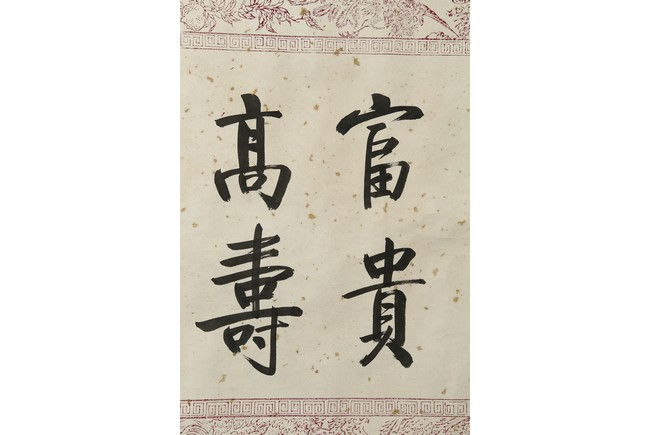 富貴
高壽